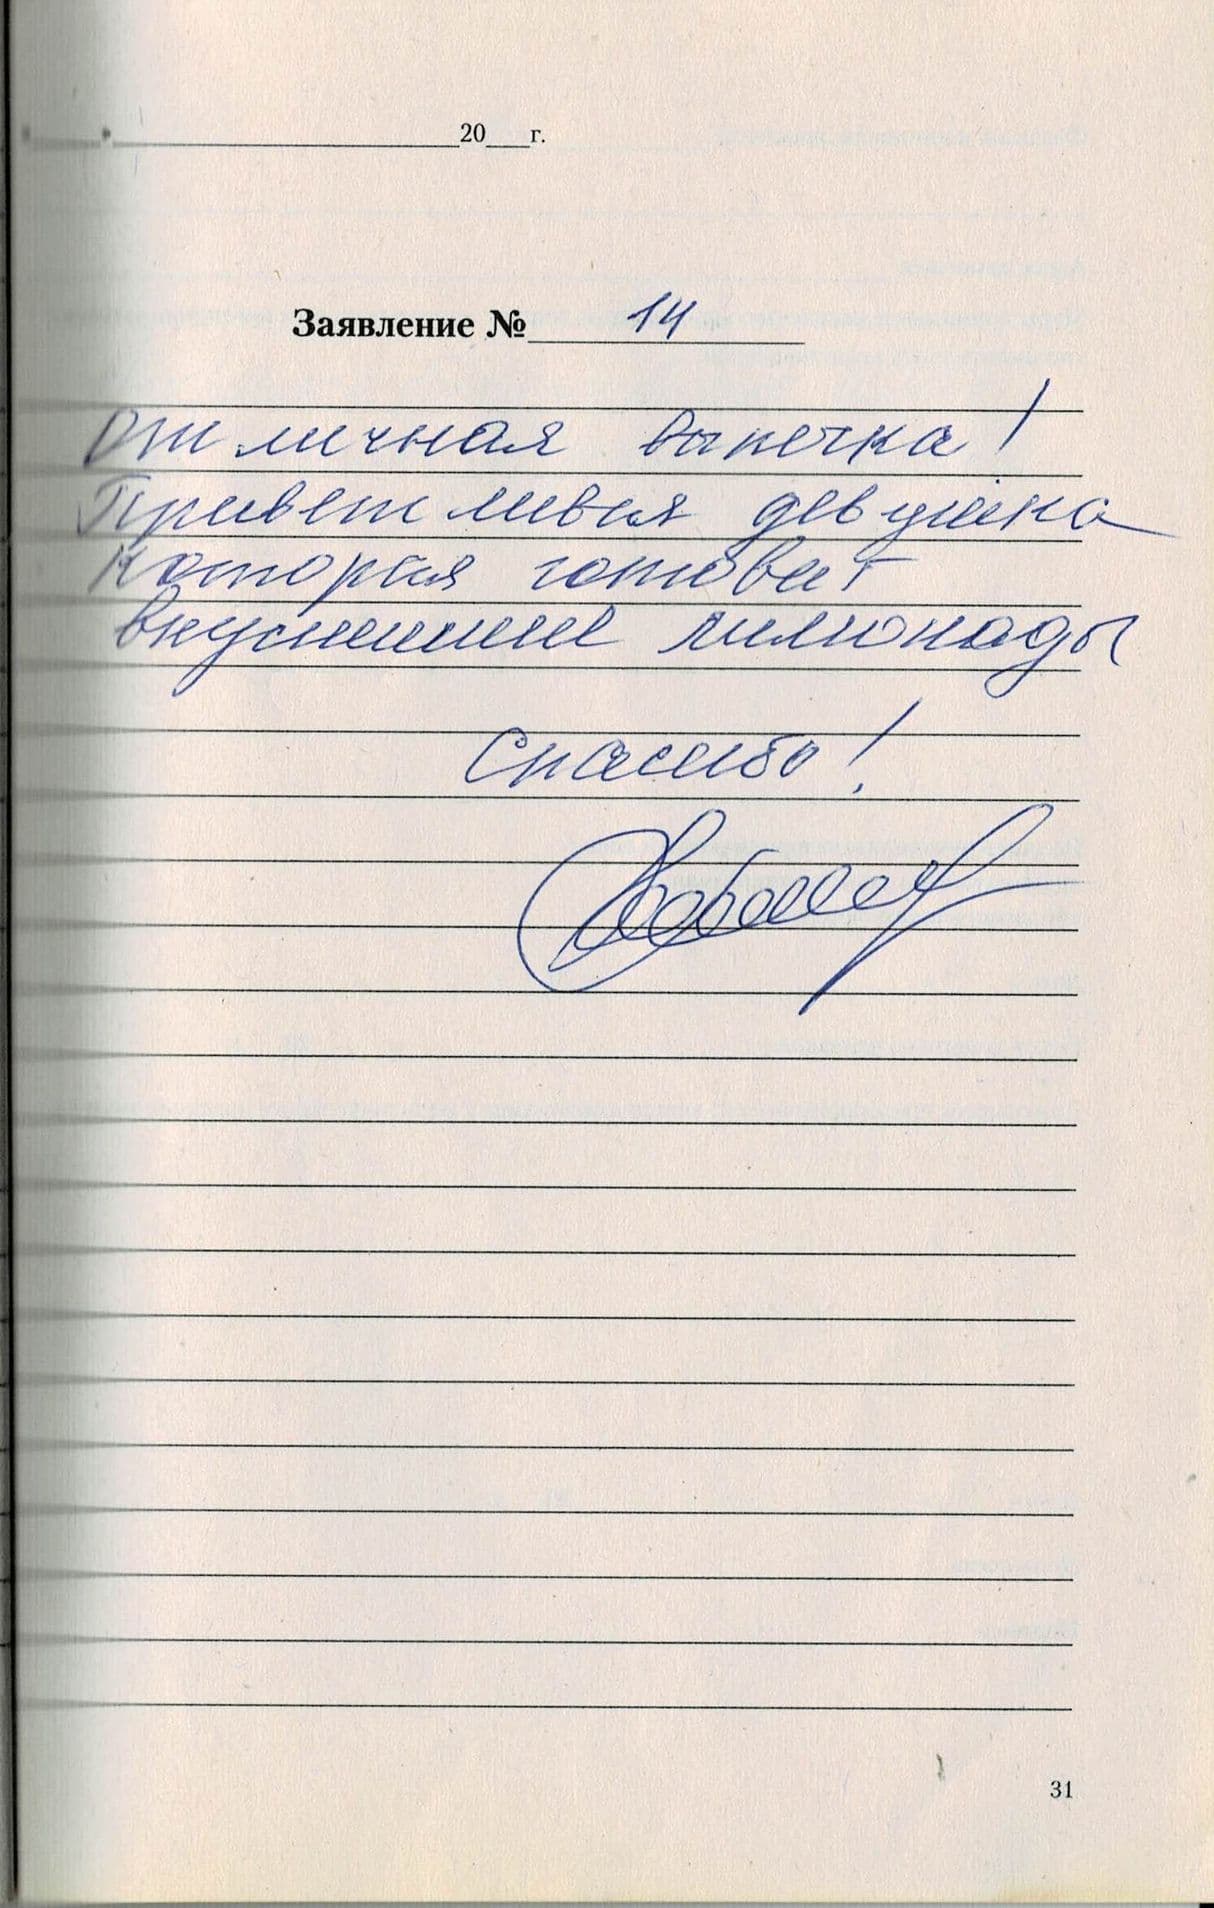 20 г.
Заявление № 14
Отличная выпечка!
Приветливая девушка
которая готовит
вкуснейшие лимонады
Спасибо!
31